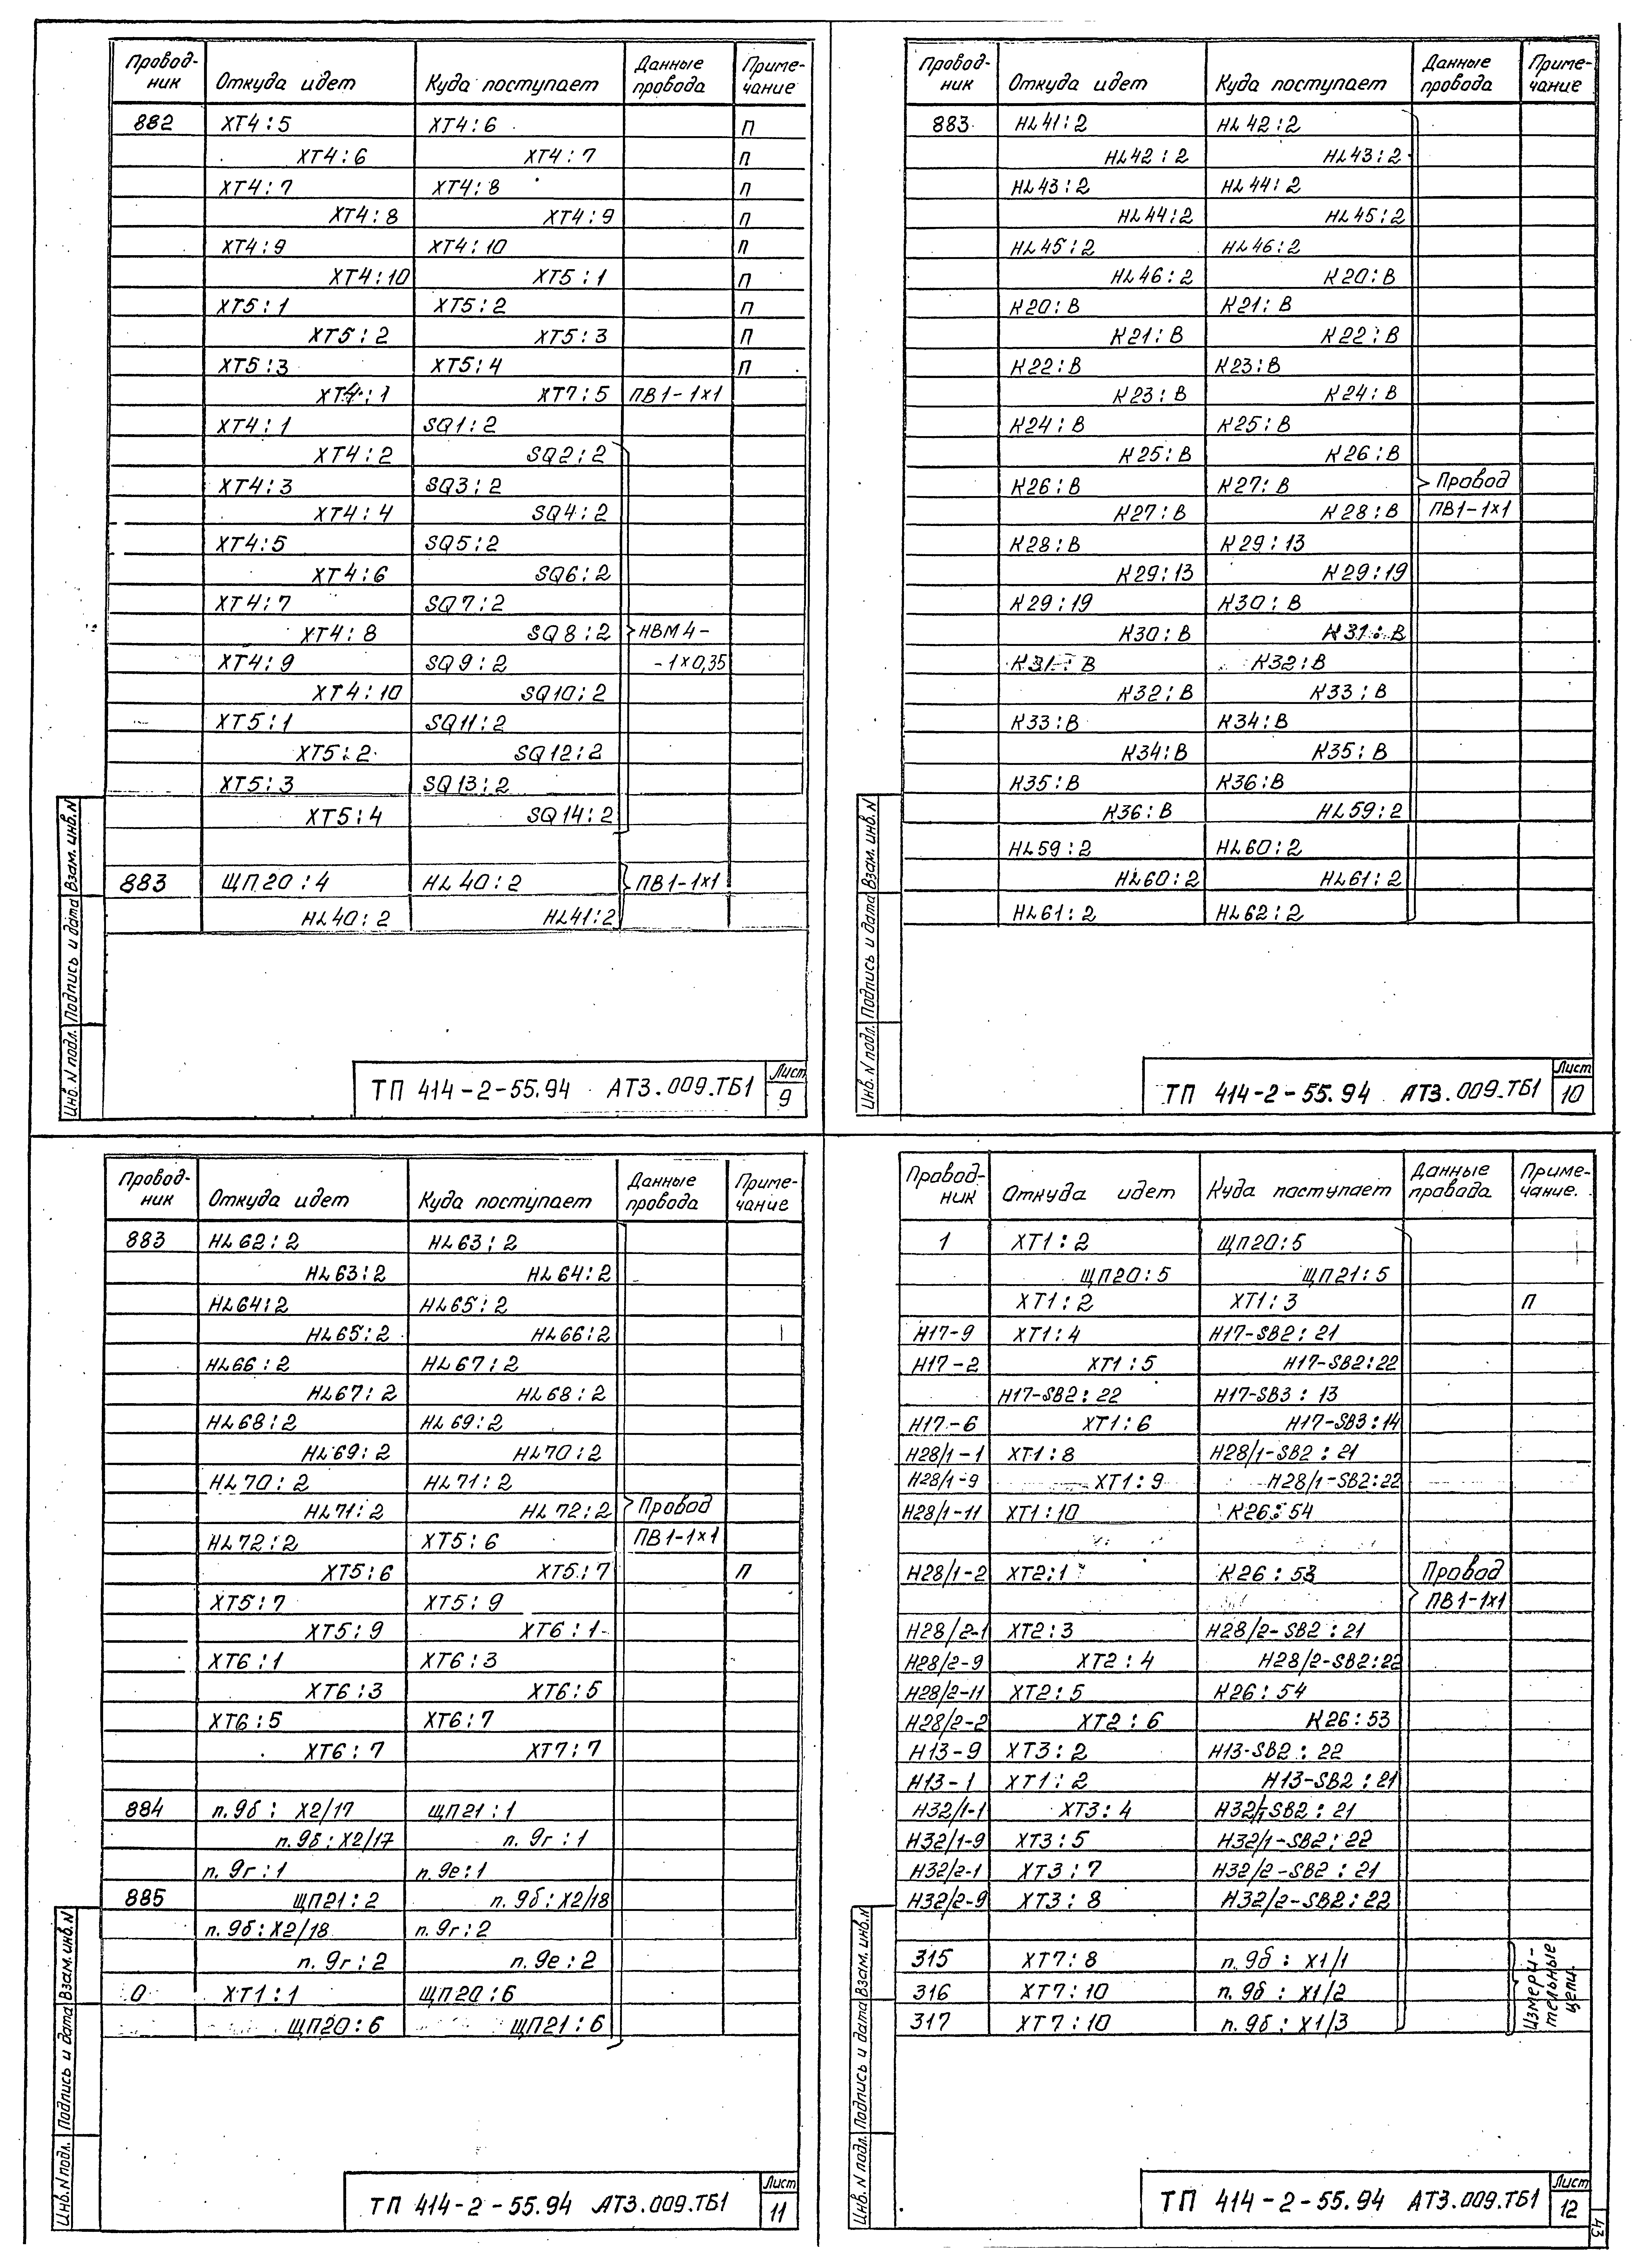 Провод- Откуда идет Куда поступает Данные Приме-
ник провода чание
882 XT4:5 XT4:6 П
XT4:6 XT4:7 П
XT4:7 XT4:8 П
XT4:8 XT4:9 П
XT4:9 XT4:10 П
XT4:10 XT5:1 П
XT5:1 XT5:2 П
XT5:2 XT5:3 П
XT5:3 XT5:4 П
XT4:1 XT7:5 ПВ1-1×1
XT4:1 SQ1:2
XT4:2 SQ2:2
XT4:3 SQ3:2
XT4:4 SQ4:2
XT4:5 SQ5:2
XT4:6 SQ6:2
XT4:7 SQ7:2
XT4:8 SQ8:2 НВМ4-
XT4:9 SQ9:2 -1×0,35
XT4:10 SQ10:2
XT5:1 SQ11:2
XT5:2 SQ12:2
XT5:3 SQ13:2
XT5:4 SQ14:2
883 ЩП20:4 HL40:2 ПВ1-1×1
HL40:2 HL41:2
Инв.N подл. Подпись и дата Взам. инв.N
ТП 414-2-55.94 АТЗ.009.ТБ1 Лист
9
Провод- Откуда идет Куда поступает Данные Приме-
ник провода чание
883 HL41:2 HL42:2
HL42:2 HL43:2
HL43:2 HL44:2
HL44:2 HL45:2
HL45:2 HL46:2
HL46:2 К20:В
К20:В К21:В
К21:В К22:В
К22:В К23:В
К23:В К24:В
К24:В К25:В
К25:В К26:В
К26:В К27:В Провод
К27:В К28:В ПВ1-1×1
К28:В К29:13
К29:13 К29:19
К29:19 К30:В
К30:В К31:В
К31:В К32:В
К32:В К33:В
К33:В К34:В
К34:В К35:В
К35:В К36:В
К36:В HL59:2
HL59:2 HL60:2
HL60:2 HL61:2
HL61:2 HL62:2
Инв.N подл. Подпись и дата Взам. инв.N
ТП 414-2-55.94 АТЗ.009.ТБ1 Лист
10
Провод- Откуда идет Куда поступает Данные Приме-
ник провода чание
883 HL62:2 HL63:2
HL63:2 HL64:2
HL64:2 HL65:2
HL65:2 HL66:2
HL66:2 HL67:2
HL67:2 HL68:2
HL68:2 HL69:2
HL69:2 HL70:2
HL70:2 HL71:2
HL71:2 HL72:2 Провод
HL72:2 XT5:6 ПВ1-1×1
XT5:6 XT5:7 П
XT5:7 XT5:9
XT5:9 XT6:1
XT6:1 XT6:3
XT6:3 XT6:5
XT6:5 XT6:7
XT6:7 XT7:7
884 п.9б: Х2/17 ЩП21:1
п.9б:Х2/17 п.9г:1
п.9г:1 п.9е:1
885 ЩП21:2 п.9б:Х2/18
п.9б:Х2/18 п.9г:2
п.9г:2 п.9е:2
0 XT1:1 ЩП20:6
ЩП20:6 ЩП21:6
Инв.N подл. Подпись и дата Взам. инв.N
ТП 414-2-55.94 АТЗ.009.ТБ1 Лист
11
Провод- Откуда идет Куда поступает Данные Приме-
ник провода чание.
1 XT1:2 ЩП20:5
ЩП20:5 ЩП21:5
XT1:2 XT1:3 П
Н17-9 XT1:4 Н17-SB2:21
Н17-2 XT1:5 Н17-SB2:22
Н17-SB2:22 Н17-SB3:13
Н17-6 XT1:6 Н17-SB3:14
Н28/1-1 XT1:8 Н28/1-SB2:21
Н28/1-9 XT1:9 Н28/1-SB2:22
Н28/1-11 XT1:10 К26:54
Н28/1-2 XT2:1 К26:53 Провод
ПВ1-1×1
Н28/2-1 XT2:3 Н28/2-SB2:21
Н28/2-9 XT2:4 Н28/2-SB2:22
Н28/2-11 XT2:5 К26:54
Н28/2-2 XT2:6 К26:53
Н13-9 XT3:2 Н13-SB2:22
Н13-1 XT1:2 Н13-SB2:21
Н32/1-1 XT3:4 Н32/1-SB2:21
Н32/1-9 XT3:5 Н32/1-SB2:22
Н32/2-1 XT3:7 Н32/2-SB2:21
Н32/2-9 XT3:8 Н32/2-SB2:22
315 XT7:8 п.9б: Х1/1
316 XT7:10 п.9б: Х1/2
317 XT7:10 п.9б: Х1/3
Измери-
тельные
цепи.
Инв.N подл. Подпись и дата Взам. инв.N
ТП 414-2-55.94 АТЗ.009.ТБ1 Лист
12
43